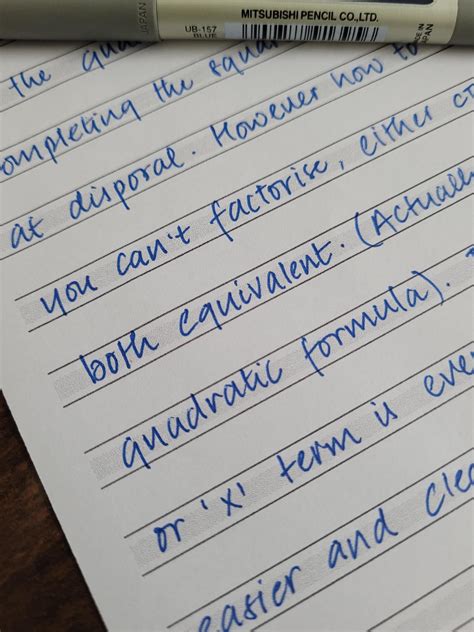 MITSUBISHI PENCIL CO.,LTD.
UB-157
BLUE
MADE IN
JAPAN
JAPAN
the
completing the
at disposal. However how to
you can't factorise, either
both equivalent. (Actually
quadratic formula).
or 'x' term is
easier and